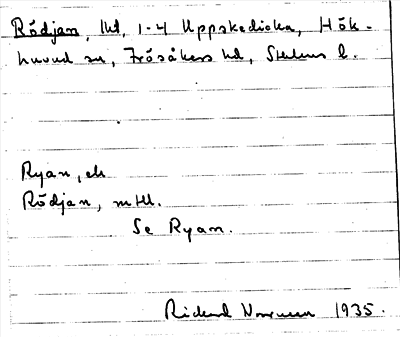 Rödjan, lht, 1-4 Uppskedicka, Hök-
huvud sn, Frösåkers hd, Sthlms l.
Ryan, ek
Rödjan, mtll.
Se Ryan.
Rickard 1935.